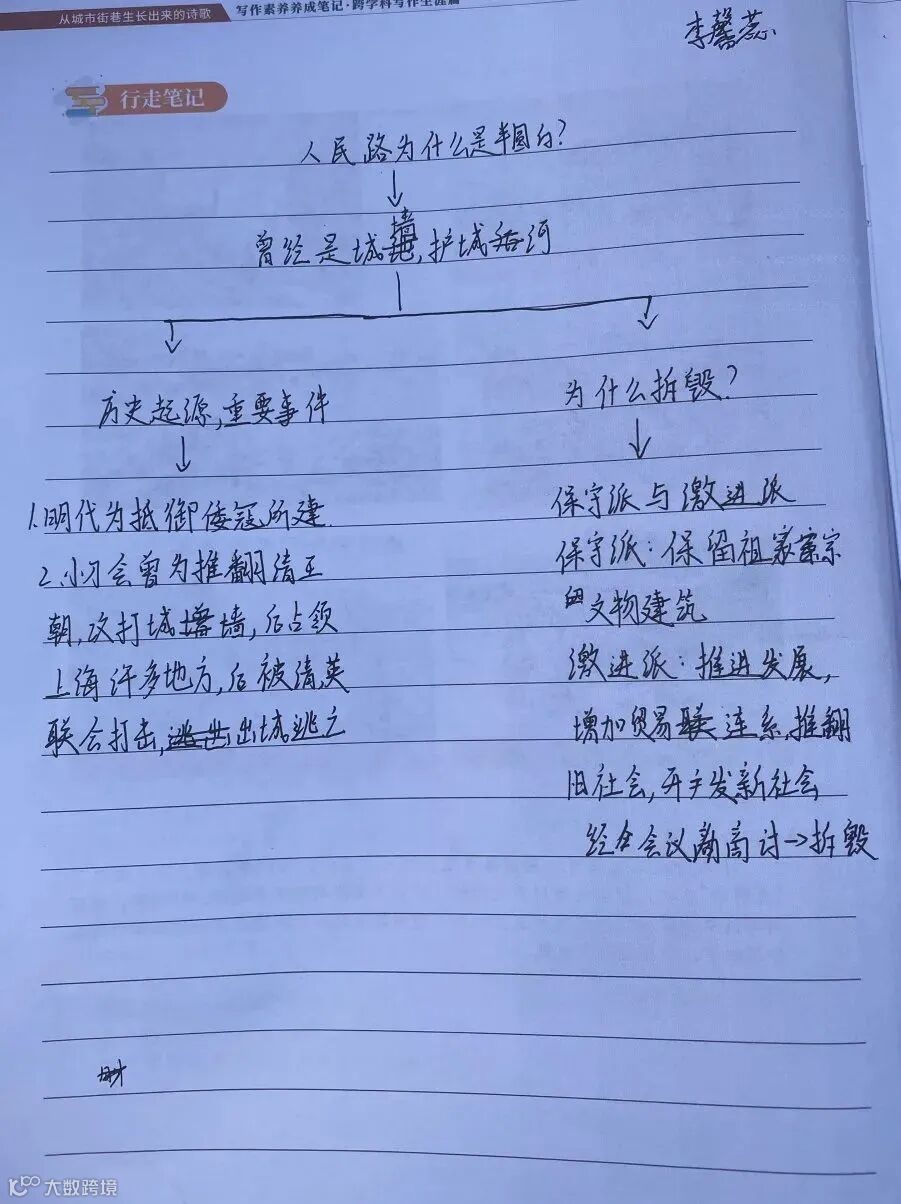 从城市街巷生长出来的诗歌
写作素养养成笔记·跨学科写作生涯篇
李馨蕊
行走笔记
人民路为什么是半圆的?
曾经是城墙,护城河
历史起源,重要事件
1.明代为抵御倭寇所建
2.小刀会曾为推翻清王
朝,攻打城墙,后占领
上海许多地方,后被清英
联合打击,出城逃之
为什么拆毁?
保守派与激进派
保守派:保留祖宗
的文物建筑
激进派:推进发展,
增加贸易连系,推翻
旧社会,开发新社会
经会议商讨→拆毁
大数跨境